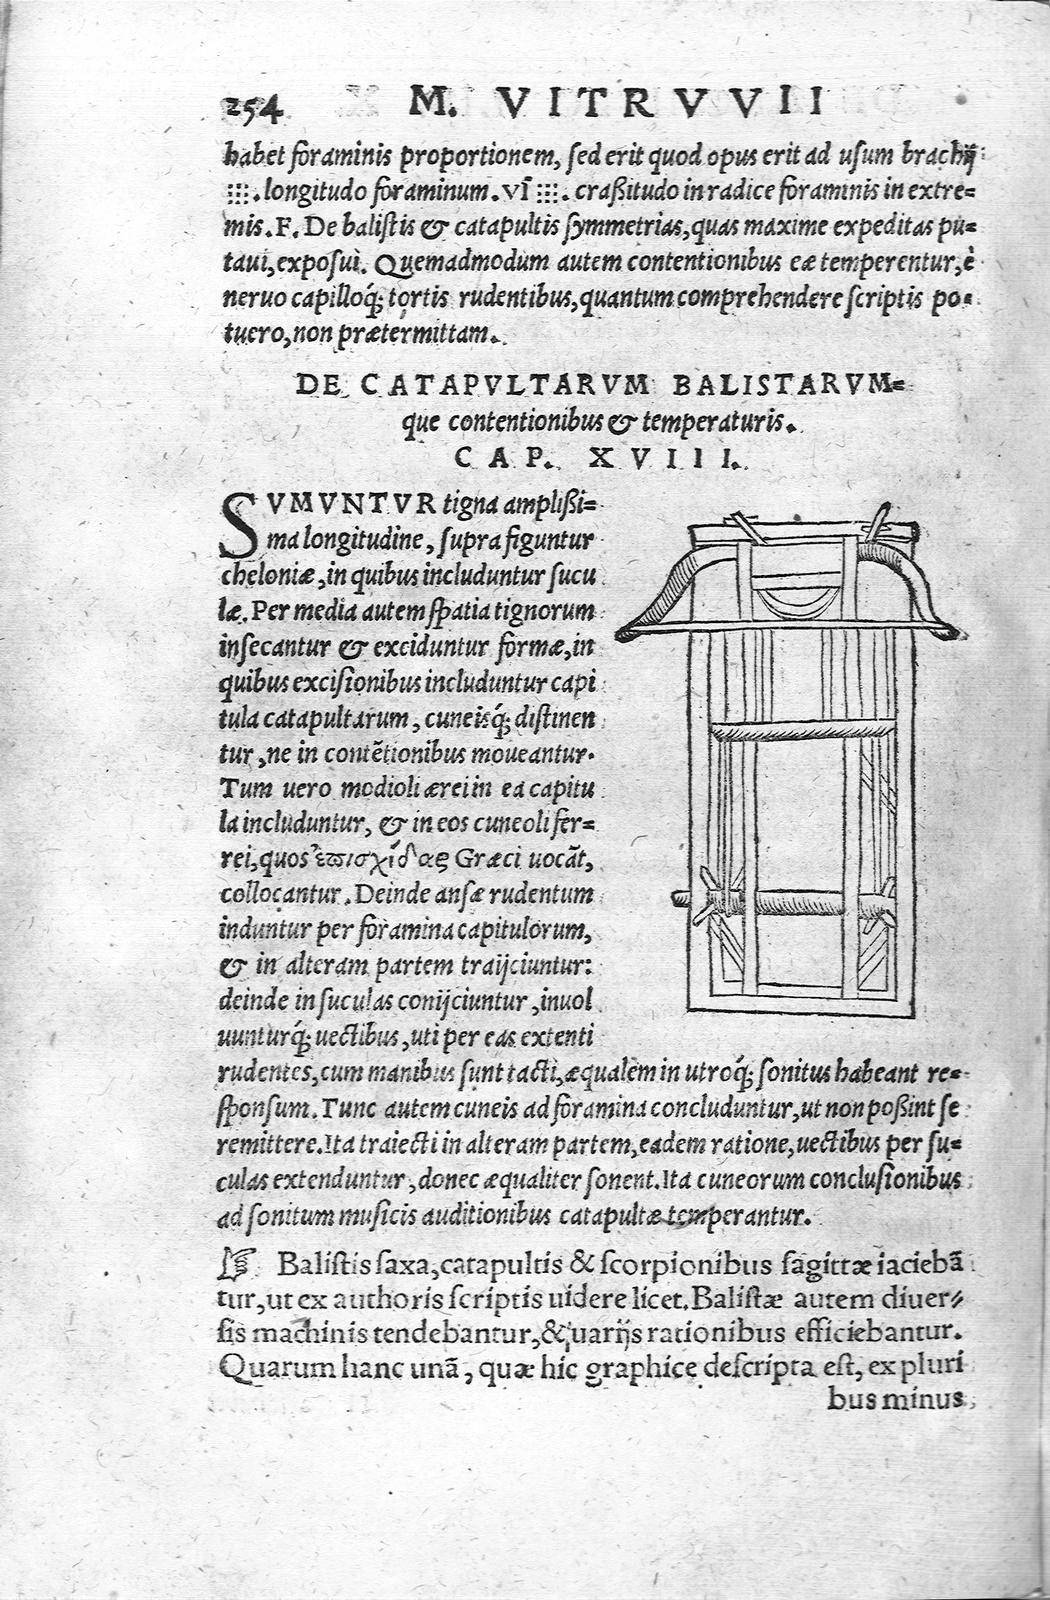 254 M. VITRVVII
habet foraminis proportionem, sed erit quod opus erit ad usum brachij
::::. longitudo foraminum. VĪ ::::. craßitudo in radice foraminis in extre=
mis. F. De balistis & catapultis symmetrias, quas maxime expeditas pu=
taui, exposui. Quemadmodum autem contentionibus eæ temperentur, è
neruo capilloq́; tortis rudentibus, quantum comprehendere scriptis po=
tuero, non prætermittam.
DE CATAPVLTARVM BALISTARVM=
que contentionibus & temperaturis.
CAP. XVIII.
SVMVNTVR tigna amplißi=
ma longitudine, supra figuntur
cheloniæ, in quibus includuntur sucu
læ. Per media autem spatia tignorum
insecantur & exciduntur formæ, in
quibus excisionibus includuntur capi
tula catapultarum, cuneisq́; distinen
tur, ne in contētionibus moueantur.
Tum uero modioli ærei in ea capitu
la includuntur, & in eos cuneoli fer=
rei, quos ἐπισχίδας Græci uocāt,
collocantur. Deinde ansæ rudentum
induntur per foramina capitulorum,
& in alteram partem traijciuntur:
deinde in suculas conijciuntur, inuol
uunturq́; uectibus, uti per eas extenti
rudentes, cum manibus sunt tacti, æqualem in utroq́; sonitus habeant re=
sponsum. Tunc autem cuneis ad foramina concluduntur, ut non poßint se
remittere. Ita traiecti in alteram partem, eadem ratione, uectibus per su=
culas extenduntur, donec æqualiter sonent. Ita cuneorum conclusionibus
ad sonitum musicis auditionibus catapultæ temperantur.
☞ Balistis saxa, catapultis & scorpionibus sagittæ iaciebā
tur, ut ex authoris scriptis uidere licet. Balistæ autem diuer=
sis machinis tendebantur, & uarijs rationibus efficiebantur.
Quarum hanc unā, quæ hic graphice descripta est, ex pluri
bus minus